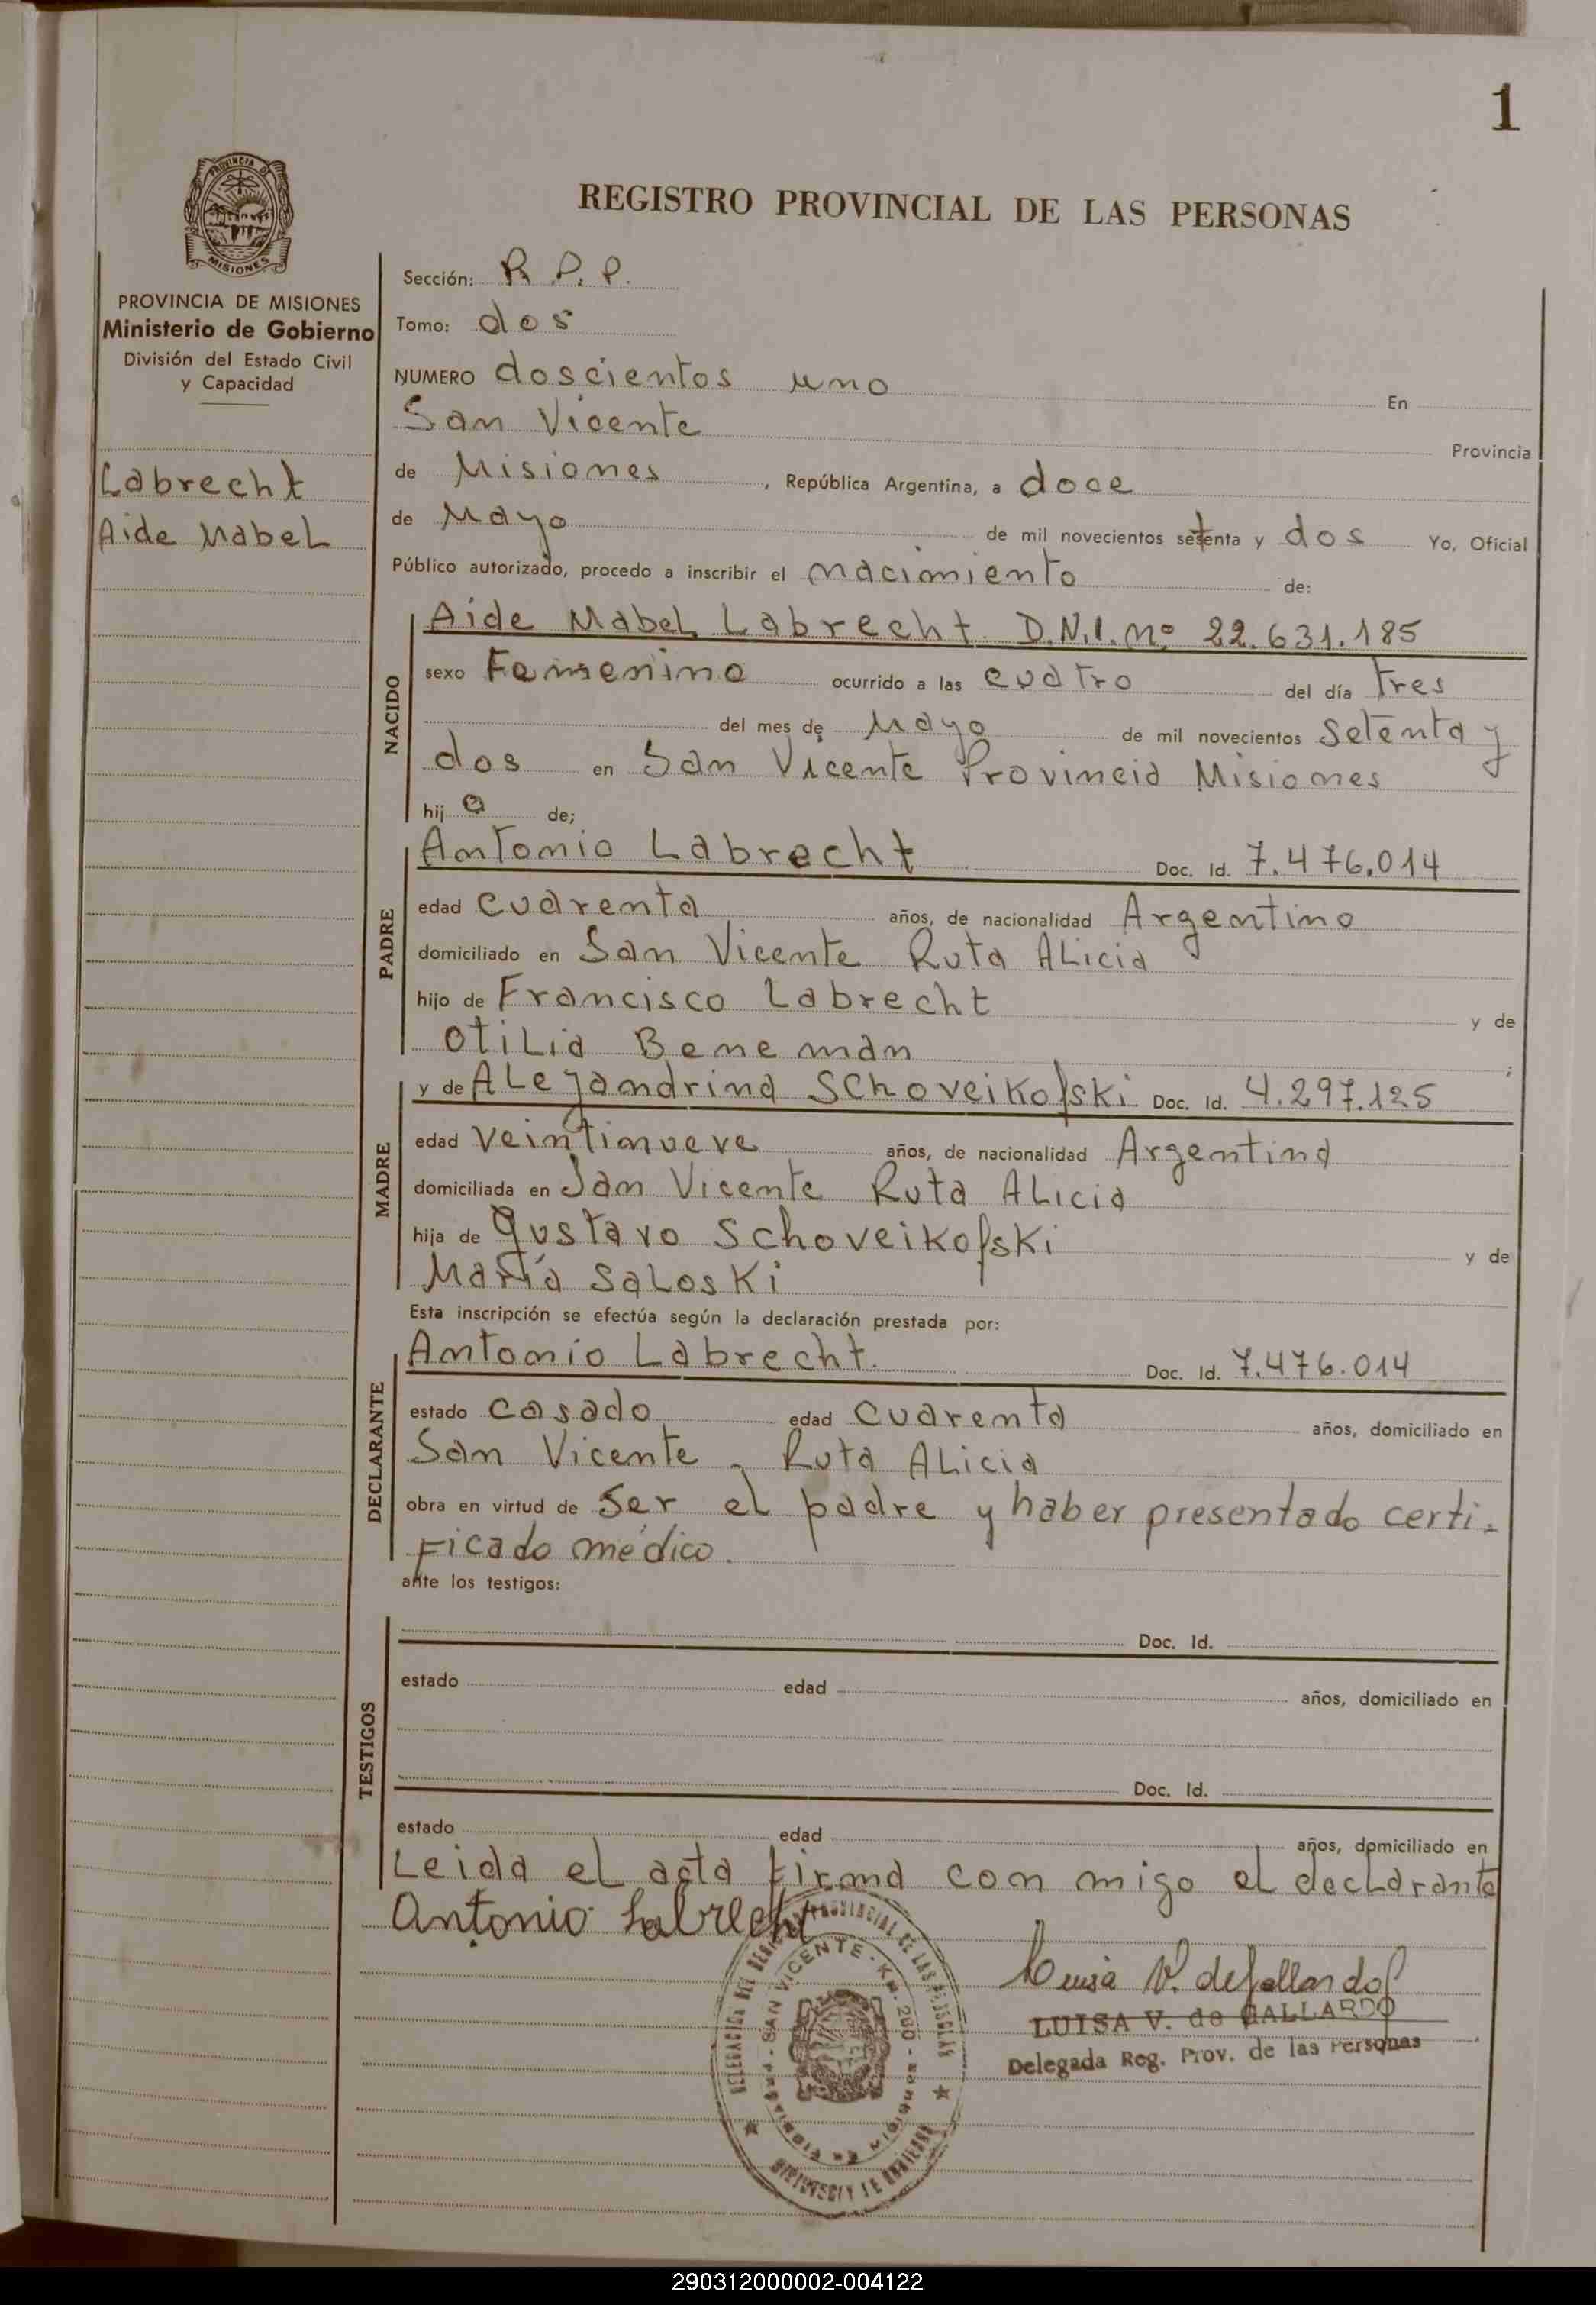 1
REGISTRO PROVINCIAL DE LAS PERSONAS
PROVINCIA
MISIONES
PROVINCIA DE MISIONES
Ministerio de Gobierno
División del Estado Civil
y Capacidad
Labrecht
Aide Mabel
Sección: R.P.P.
Tomo: dos
NUMERO doscientos uno En
San Vicente Provincia
de Misiones, República Argentina, a doce
de Mayo de mil novecientos setenta y dos Yo, Oficial
Público autorizado, procedo a inscribir el nacimiento de:
NACIDO
Aide Mabel Labrecht D.N.I. nº 22.631.185
sexo Femenino ocurrido a las cuatro del día tres
del mes de Mayo de mil novecientos setenta y
dos en San Vicente Provincia Misiones
hij a de;
PADRE
Antonio Labrecht Doc. Id. 7.476.014
edad cuarenta años, de nacionalidad Argentino
domiciliado en San Vicente Ruta Alicia
hijo de Francisco Labrecht y de
Otilia Beneman ;
MADRE
y de Alejandrina Schoveikofski Doc. Id. 4.297.125
edad veintinueve años, de nacionalidad Argentina
domiciliada en San Vicente Ruta Alicia
hija de Gustavo Schoveikofski y de
María Saloski
Esta inscripción se efectúa según la declaración prestada por:
DECLARANTE
Antonio Labrecht. Doc. Id. 7.476.014
estado casado edad cuarenta años, domiciliado en
San Vicente - Ruta Alicia
obra en virtud de ser el padre y haber presentado certi-
ficado médico.
ante los testigos:
TESTIGOS
Doc. Id.
estado edad años, domiciliado en
Doc. Id.
estado edad años, domiciliado en
Leida el acta firma con migo el declarante
Antonio Labrecht
PROVINCIAL DE LAS PERSONAS
SAN VICENTE - Km. 260 -
Luisa V. de Gallardo
LUISA V. de GALLARDO
Delegada Reg. Prov. de las Personas
290312000002-004122